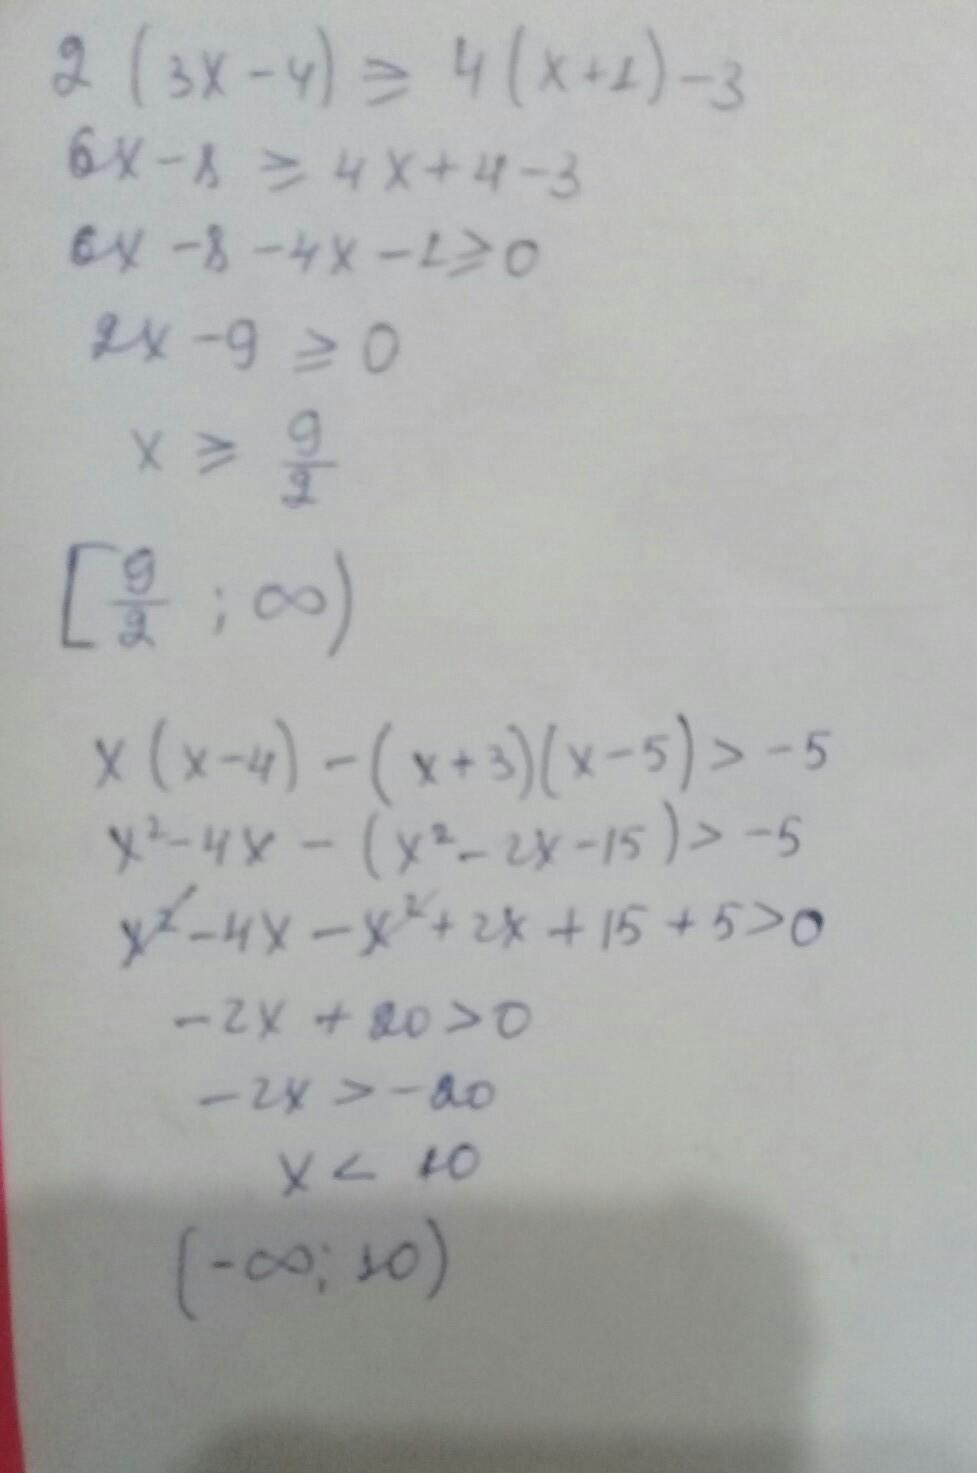 2 (3x - 4) ≥ 4 (x+1) - 3
6x - 8 ≥ 4x + 4 - 3
6x - 8 - 4x - 1 ≥ 0
2x - 9 ≥ 0
x ≥ 9/2
[9/2 ; ∞)
x (x-4) - (x+3)(x-5) > -5
x² - 4x - (x² - 2x - 15) > -5
x² - 4x - x² + 2x + 15 + 5 > 0
-2x + 20 > 0
-2x > -20
x < 10
(-∞; 10)